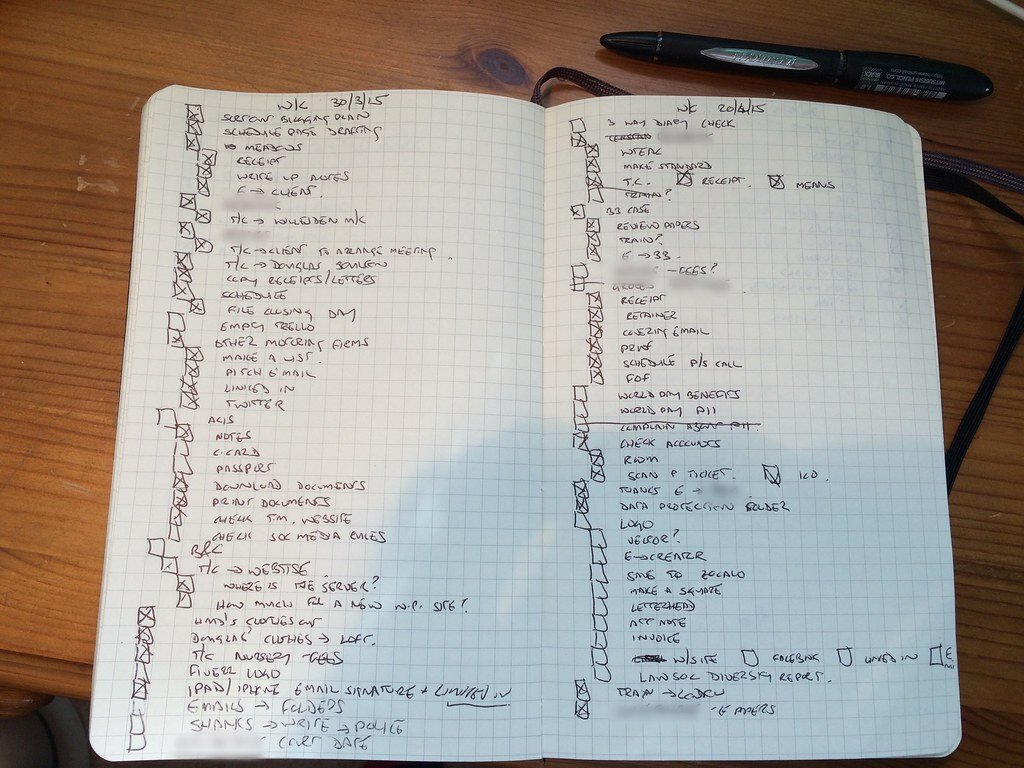 W/C 30/3/15
SORT OUT BLOGGING PLAN
SCHEDULE PAGE DRAFTING
MEADOWS
RECEIPT
WRITE UP NOTES
E → CLIENT.
T/C → WILLESDEN M/C
T/C → CLIENT TO ARRANGE MEETING.
T/C → DOUGLAS
COPY RECEIPTS/LETTERS
SCHEDULE
FILE CLOSING DAY
EMPTY TRELLO
OTHER MOTORING FIRMS
MAKE A LIST.
PITCH EMAIL
LINKED IN
TWITTER
ACIS
NOTES
C.CARD
PASSPORT
DOWNLOAD DOCUMENTS
PRINT DOCUMENTS
CHECK T.M. WEBSITE
CHECK SOC MEDIA RULES
B&C
T/C → WEBTISE
WHERE IS THE SERVER?
HOW MUCH FOR A NEW W.P. SITE?
CLOTHES OUT
DOUGLAS' CLOTHES → LOFT.
T/C NURSERY FEES
FIVERR LOGO
IPAD/IPHONE EMAIL SIGNATURE + LINKED IN
EMAILS → FOLDERS
SHANKS → WRITE → POLICE
- COURT DATE
W/C 20/4/15
3 WAY DIARY CHECK
MAKE STANDARD
T.C. RECEIPT. MEANS
TRAIN?
BB CASE
REVIEW PAPERS
TRAIN?
E → BB.
- FEES?
RECEIPT
RETAINER
COVERING EMAIL
PRINT
SCHEDULE P/S CALL
FOF
WORLD PAY BENEFITS
WORLD PAY PII
COMPLAIN ABOUT PII.
CHECK ACCOUNTS
SCAN P TICKET. ICO.
THANKS E →
DATA PROTECTION FOLDER
LOGO
VECTOR?
E → CREATER
SAVE TO ZOCALO
MAKE A SQUARE
LETTERHEAD
ATT NOTE
INVOICE
W/SITE FACEBOOK LINKED IN
LAW SOC DIVERSITY REPORT.
TRAIN →
- E PAPERS
MITSUBISHI PENCIL CO.
http://www.uniball.com
BLACK